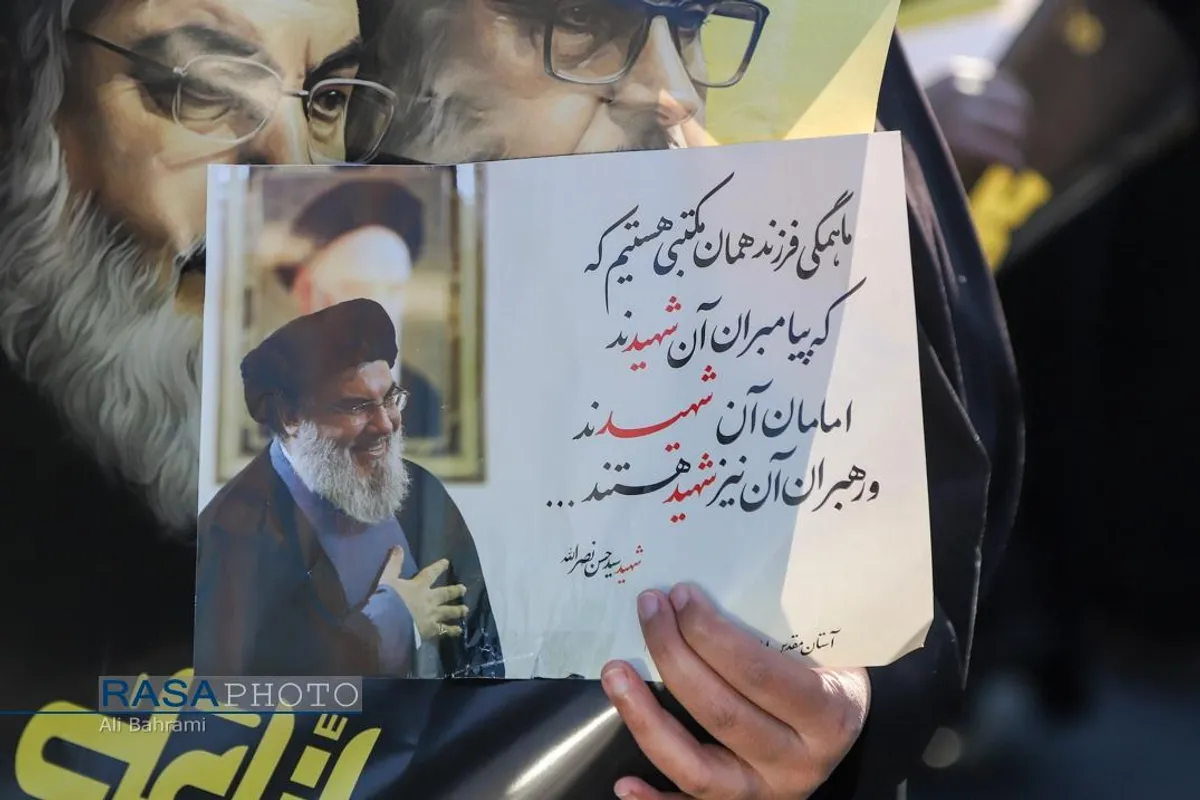 ما همگی فرزند همان مکتبی هستیم که
که پیامبران آن شهیدند
امامان آن شهیدند
و رهبران آن نیز شهید هستند ...
شهید سید حسن نصرالله
آستان مقدس
RASAPHOTO
Ali Bahrami
إنّا